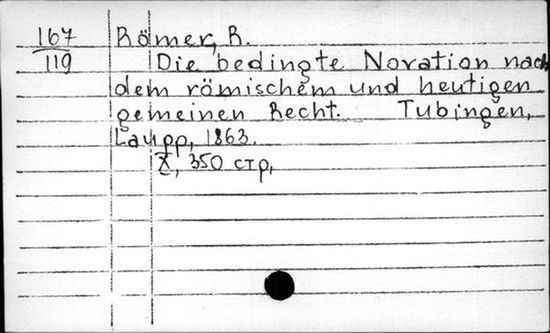 167 Römer, R.
119 Die bedingte Novation nach
dem römischem und heutigen
gemeinen Recht. Tubingen,
Laupp, 1863.
X, 350 стр,